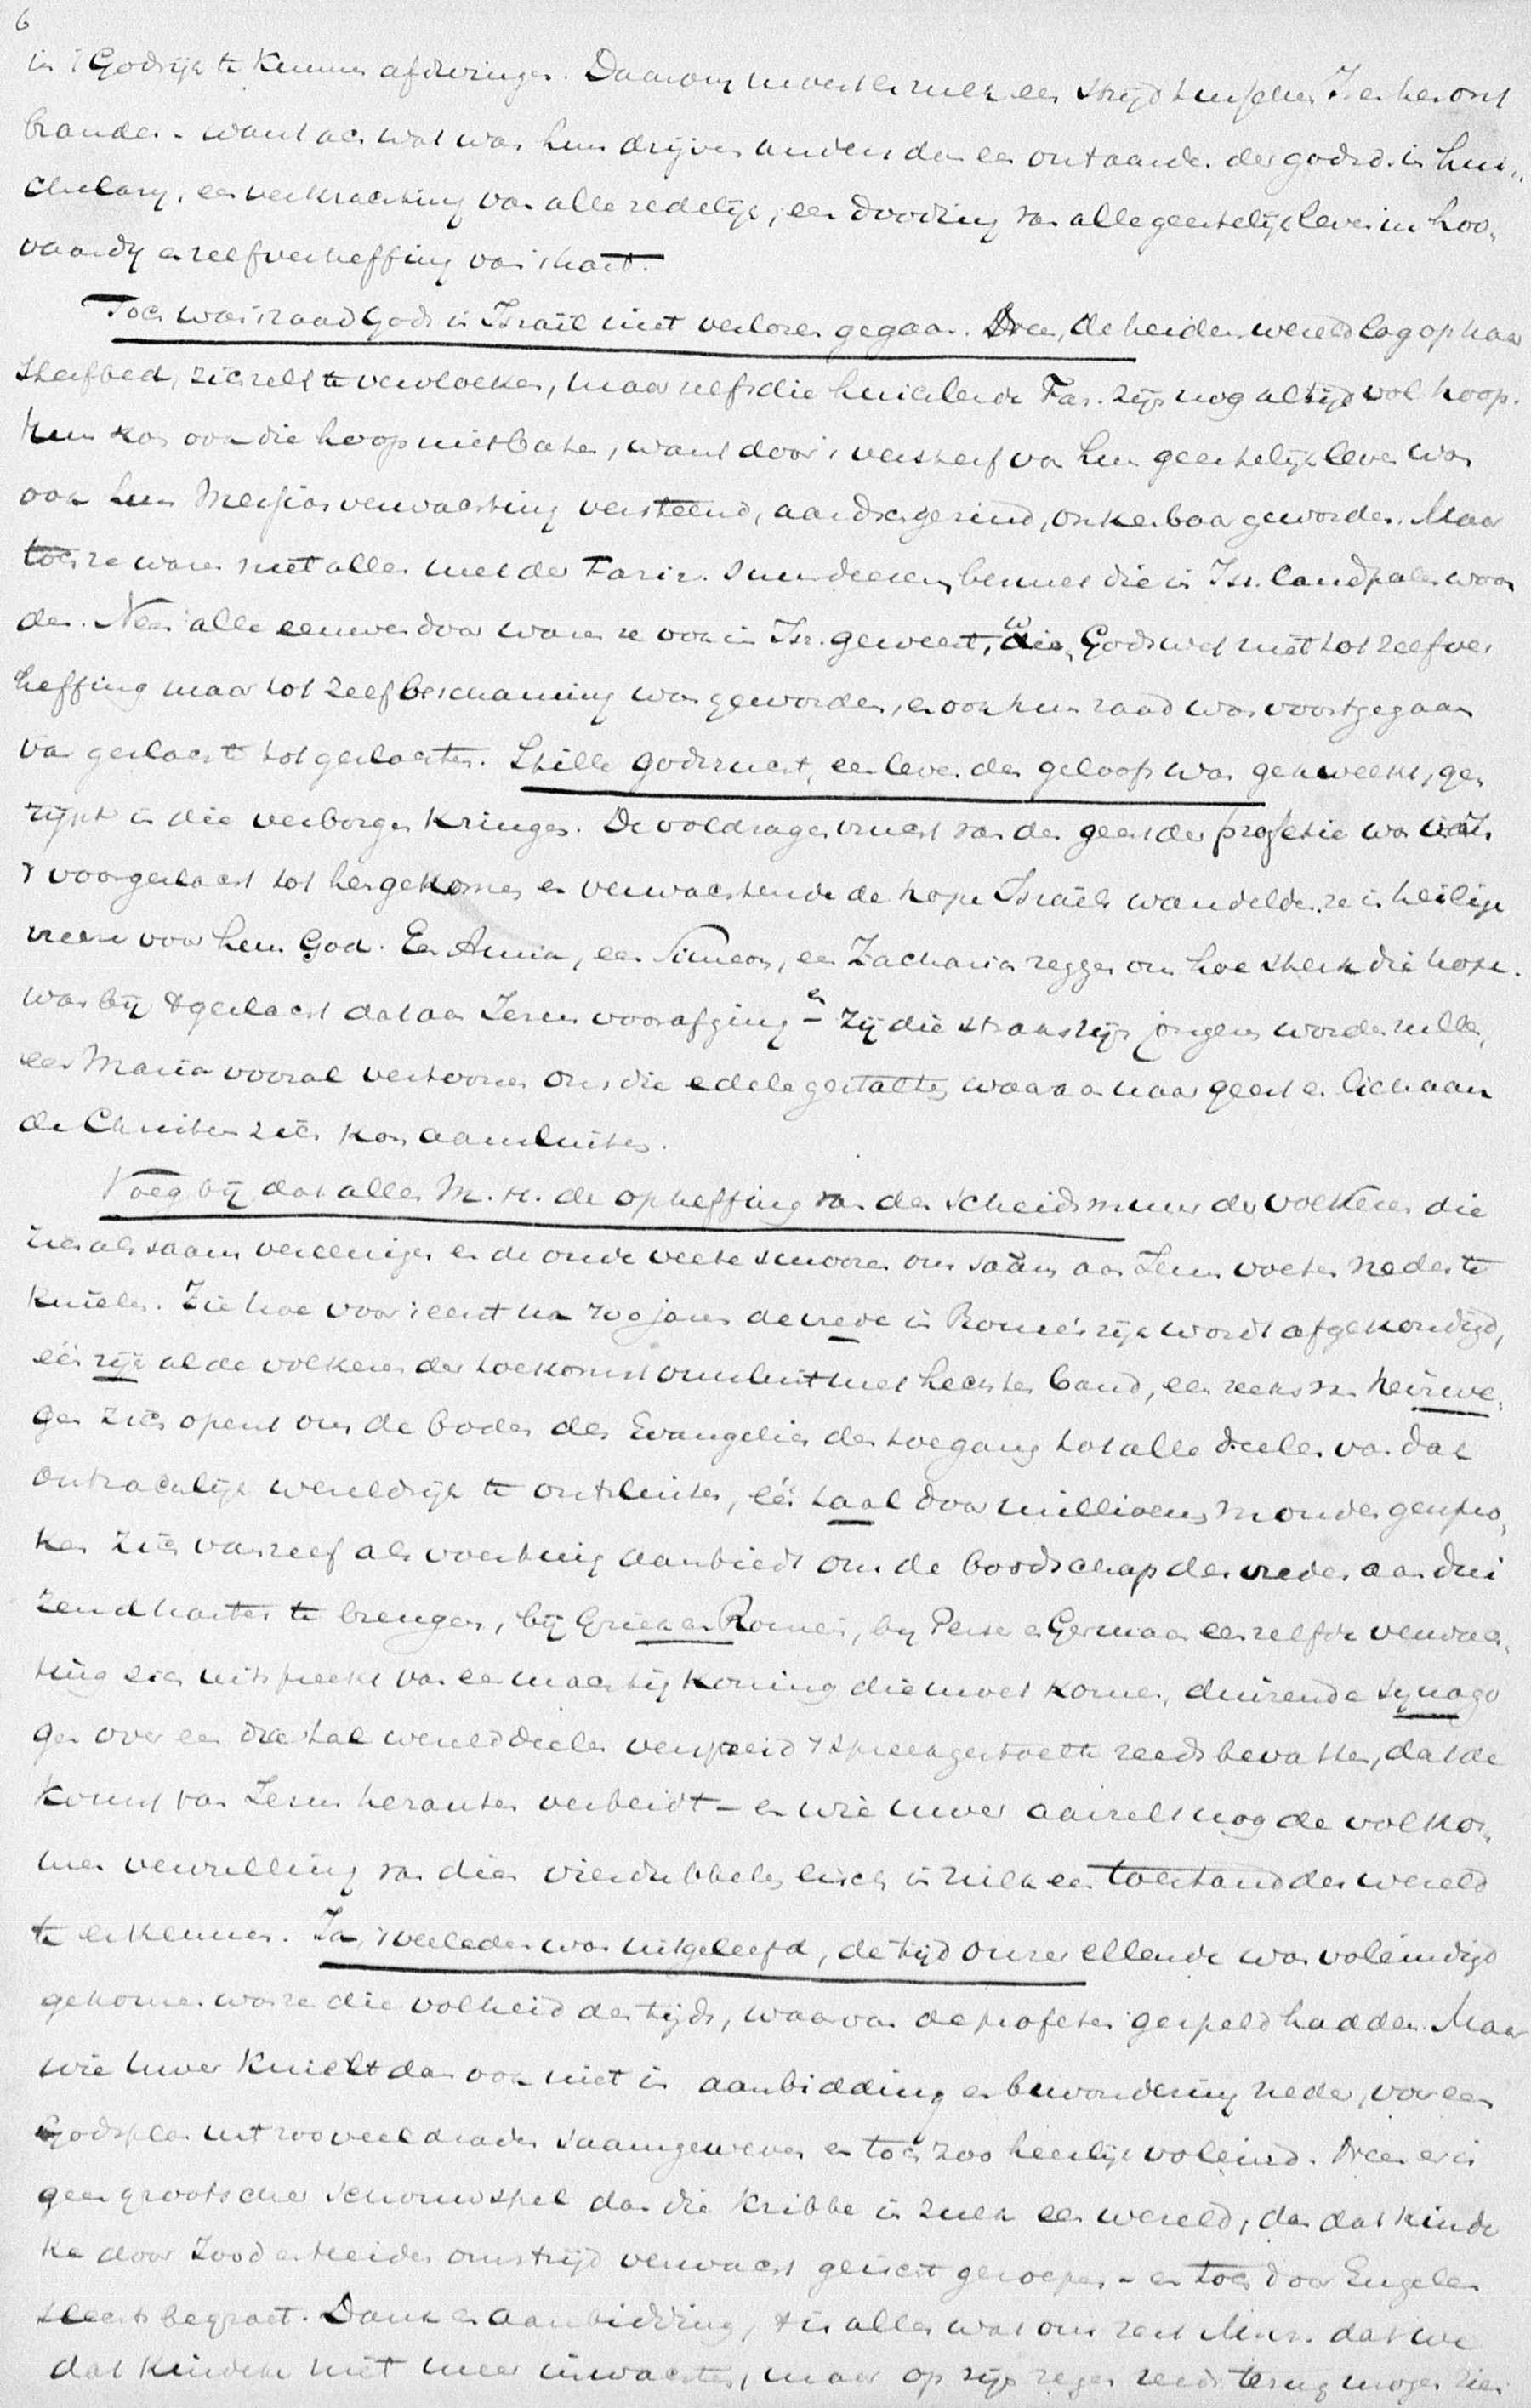 6
in 't Godsrijk te kunnen afdwingen. Daarom moest er zulk een strijd tusschen Jezus en hen ont
branden - want ach wat was hun drijven anders dan een ontaarden der godsd. in hui„
chelary, een verkrachting van alle redelijk, een dooding van alle geestelijk leven in hoo„
vaardy en zelfverheffing van 't hart.
Toch was 's raad Gods in Israël niet verloren gegaan. Neen, de heidenwereld lag op haar
sterfbed, zich zelf te vervloeken, maar zelfs die huichelende Far. zijn nog altijd vol hoop.
Hun kon ook die hoop niet baten, want door 't versterf van hun geestelijk leven was
ook hun Messiasverwachting versteend, aardschgezind, onkenbaar geworden. Maar
toch ze waren niet allen met den Fariz. zuurdeesem besmet die in Isr. landpalen woon
den. Neen alle eeuwen door waren ze ook in Isr. geweest, wien Gods wet niet tot zelfver
heffing maar tot zelfbeschaming was geworden, en ook hun zaad was voortgegaan
van geslachte tot geslachten. Stille godsvrucht, een leven des geloofs was gekweekt, ge„
rijpt in die verborgen kringen. De voldragen vrucht van den geest der profetie was van
't voorgeslacht tot hen gekomen en verwachtende de hope Israëls wandelden ze in heilige
vreeze voor hun God. Een Anna, een Simeon, een Zacharias zeggen ons hoe sterk die hope
was bij 't geslacht dat aan Jezus voorafging - en zij die straks zijn jongers worden zullen,
een Maria vooral vertoonen ons die edele gestalten waaraan naar geest en lichaam
de Christus zich kon aansluiten.
Voeg bij dat alles M. H. de opheffing van den scheidsmuur der volkeren die
zich als saam vereenigen en de oude veete smooren om saâm aan Jezus voeten neder te
knielen. Zie hoe voor 't eerst na 700 jaren de vrede in Rome's rijk wordt afgekondigd,
één rijk al de volkeren der toekomst omsluit met hechten band, een reeks van heirwe„
gen zich opent om de boden des Evangelies den toegang tot alle deelen van dat
ontzachlijk wereldrijk te ontsluiten, één taal door millioenen monden gespro„
ken zich vanzelf als voertuig aanbiedt om de boodschap des vredes aan dui
zend harten te brengen, bij Griek en Romein, by Pers en Germaan eenzelfde verwach„
ting zich uitspreekt van een machtig koning die moet komen, duizende synago
gen over een drietal werelddeelen verspreid 't spreekgestoelte reeds bevatten, dat de
komst van Jezus herauten verbeidt - en wie uwer aarzelt nog de volkom„
men vervulling van dien vierdubbelen eisch in zulk een toestand der wereld
te erkennen. Ja, 't verleden was uitgeleefd, de tijd onzer ellende was voleindigd
gekomen was ze die volheid des tijds, waarvan de profeten gespeld hadden. Maar
wie uwer knielt dan ook niet in aanbidding en bewondering neder, voor een
Godsplan uit zooveel draden saamgeweven en toch zoo heerlijk voleind. Neen er is
geen grootscher schouwspel dan die kribbe in zulk een wereld, dan dat kinde
ke door Jood en Heiden omstrijd verwacht geëischt geroepen - en toch door Engelen
slechts begroet. Dank en aanbidding, 't is alles wat ons rest Mns. dat we
dat kindeke niet meer inwachten, maar op zijn zegen reeds terug mogen zien